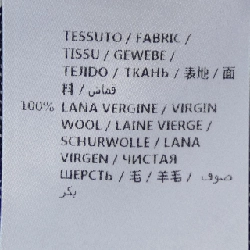 TESSUTO / FABRIC /
TISSU / GEWEBE /
TEJIDO / ТКАНЬ / 表地 / 面
料 / قماش /
100% LANA VERGINE / VIRGIN
WOOL / LAINE VIERGE /
SCHURWOLLE / LANA
VIRGEN / ЧИСТАЯ
ШЕРСТЬ / 毛 / 羊毛 / صوف
بكر